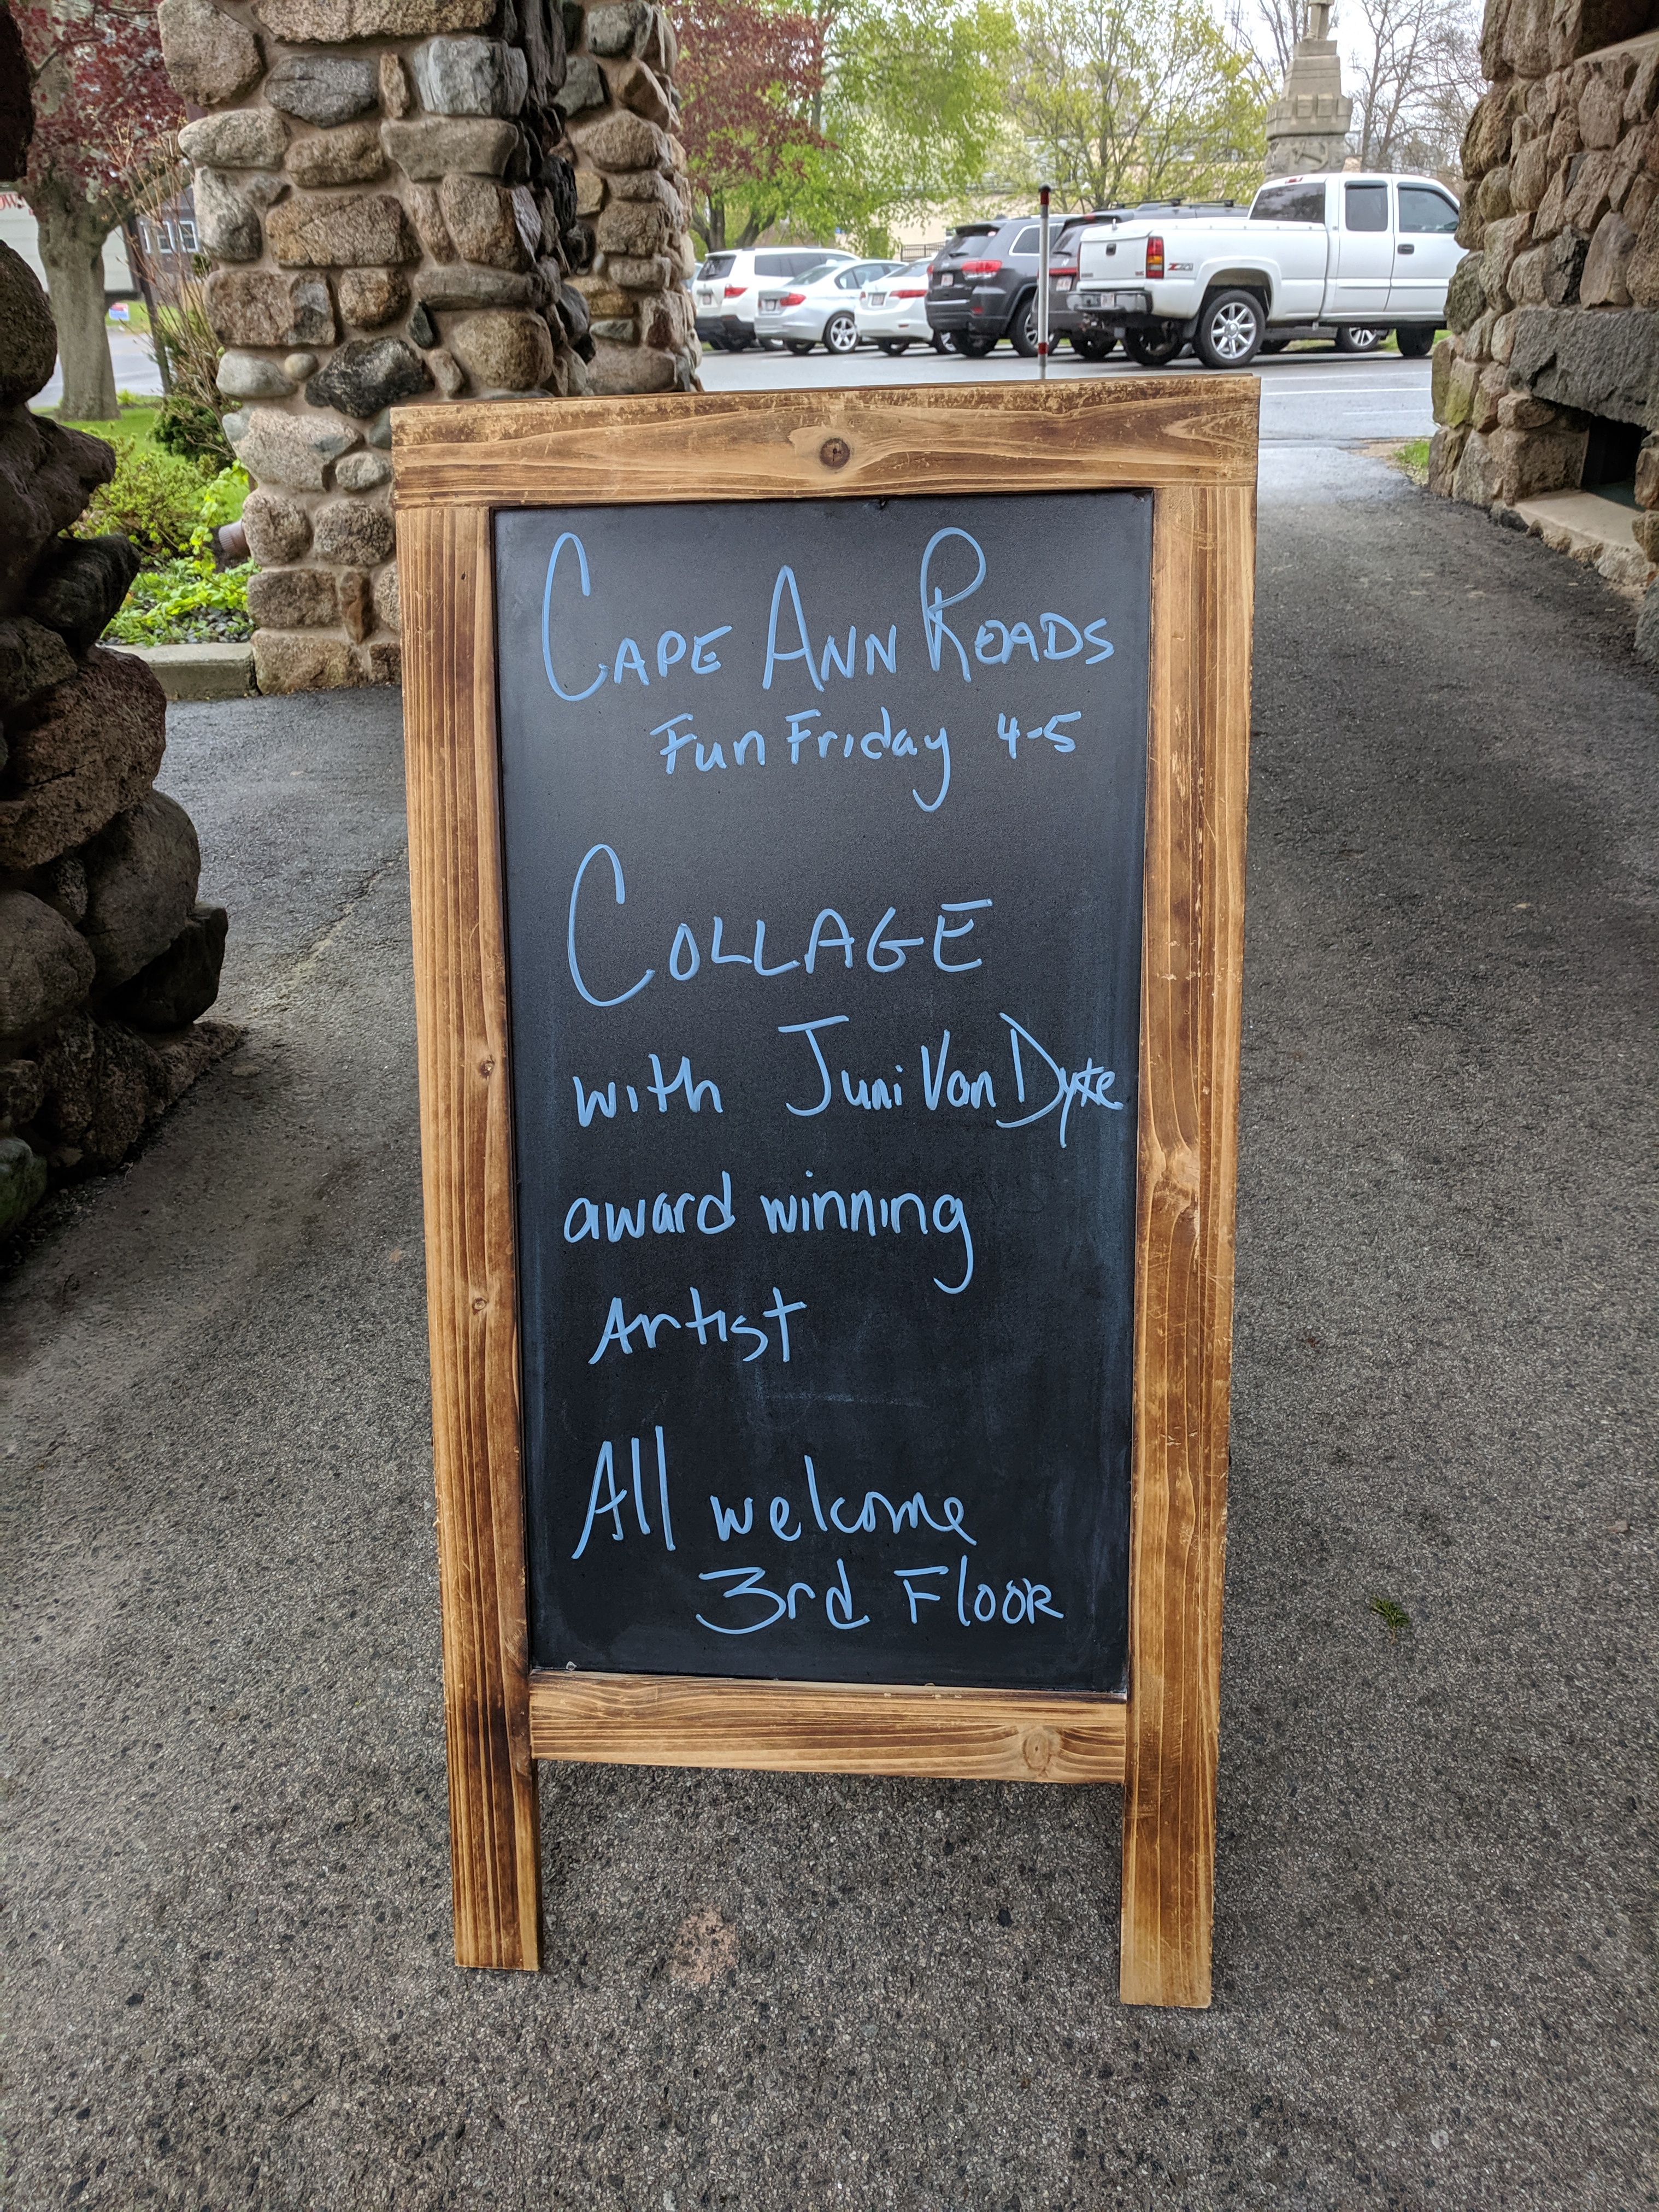 CAPE ANN ROADS
Fun Friday 4-5
COLLAGE
with Juni Van Dyke
award winning
Artist
All welcome
3rd FlooR
Z71